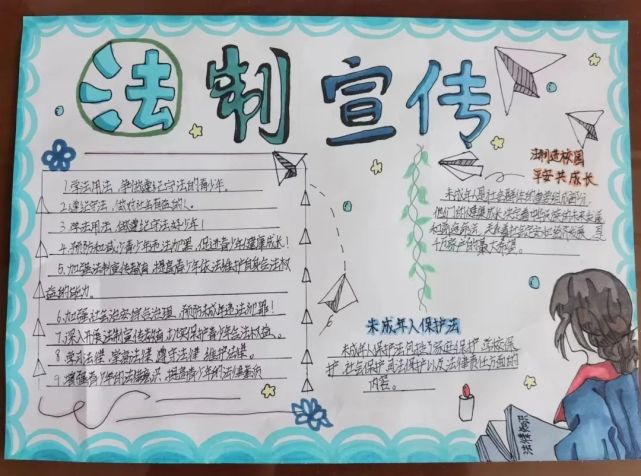 法制宣传
1.学法用法,争做遵纪守法的青少年。
2.遵纪守法,
3.学法用法,做遵纪守法好少年!
4.预防和减少青少年违法犯罪,促进青少年健康成长!
5.加强法制宣传教育,提高青少年依法维护自身合法权
益的能力。
6.加强社会治安综合治理,预防未成年违法犯罪!
7.深入开展法制宣传教育,切实保护青少年合法权益。
8.学习法律、掌握法律、遵守法律、维护法律。
9.增强青少年的法律意识,提高青少年的法律素质
法制进校园
平安共成长
未成年人是社会群体的重要组成部分,
他们的健康成长
和
千万家庭的最大希望。
未成年人保护法
未成年人保护法包括了家庭保护、学校保
护、社会保护、司法保护以及法律责任方面的
内容。
法律知识